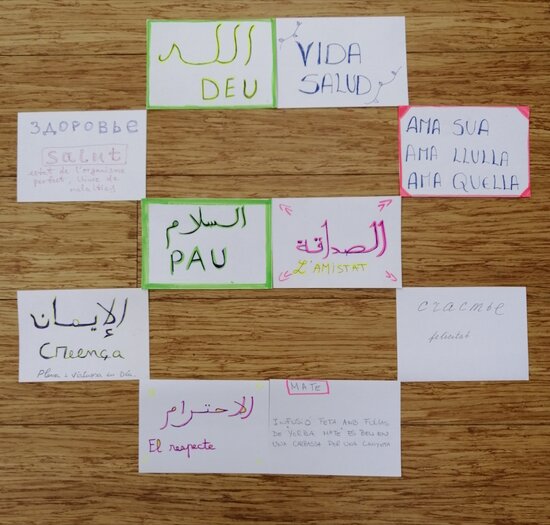 الله
DEU
VIDA
SALUD
ЗДОРОВЬЕ
Salut
estat de l'organisme
perfect, lliure de
malalties
AMA SUA
AMA LLULLA
AMA QUELLA
السلام
PAU
الصداقة
L'AMISTAT
الإيمان
Creença
Plena i
счастье
felicitat
الاحترام
El respecte
MATE
INFUSIÓ FETA AMB FULLES
DE YERBA MATE ES BEU EN
UNA CARBASSA PER UNA CANYETA